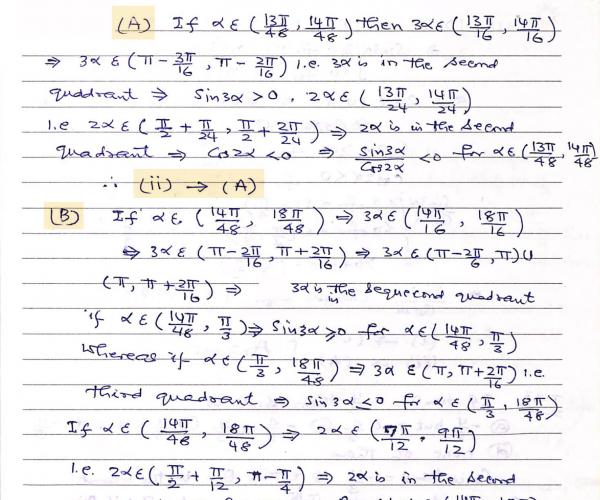 (A) If α ε (13π/48, 14π/48) then 3α ε (13π/16, 14π/16)
⇒ 3α ε (π − 3π/16, π − 2π/16) i.e. 3α is in the second
quadrant ⇒ Sin3α > 0. 2α ε (13π/24, 14π/24)
i.e 2α ε (π/2 + π/24, π/2 + 2π/24) ⇒ 2α is in the second
quadrant ⇒ Cos2α < 0 ⇒ Sin3α/Cos2α < 0 for α ε (13π/48, 14π/48)
∴ (ii) → (A)
(B) If α ε (14π/48, 18π/48) ⇒ 3α ε (14π/16, 18π/16)
⇒ 3α ε (π − 2π/16, π + 2π/16) ⇒ 3α ε (π − 2π/6, π) U
(π, π + 2π/16) ⇒ 3α is in the sequecond quadrant
if α ε (14π/48, π/3) ⇒ Sin3α ≥ 0 for α ε (14π/48, π/3)
whereas if α ε (π/3, 18π/48) ⇒ 3α ε (π, π + 2π/16) i.e.
third quadrant ⇒ Sin3α ≤ 0 for α ε (π/3, 18π/48)
If α ε (14π/48, 18π/48) ⇒ 2α ε (7π/12, 9π/12)
i.e. 2α ε (π/2 + π/12, π − π/4) ⇒ 2α is in the second